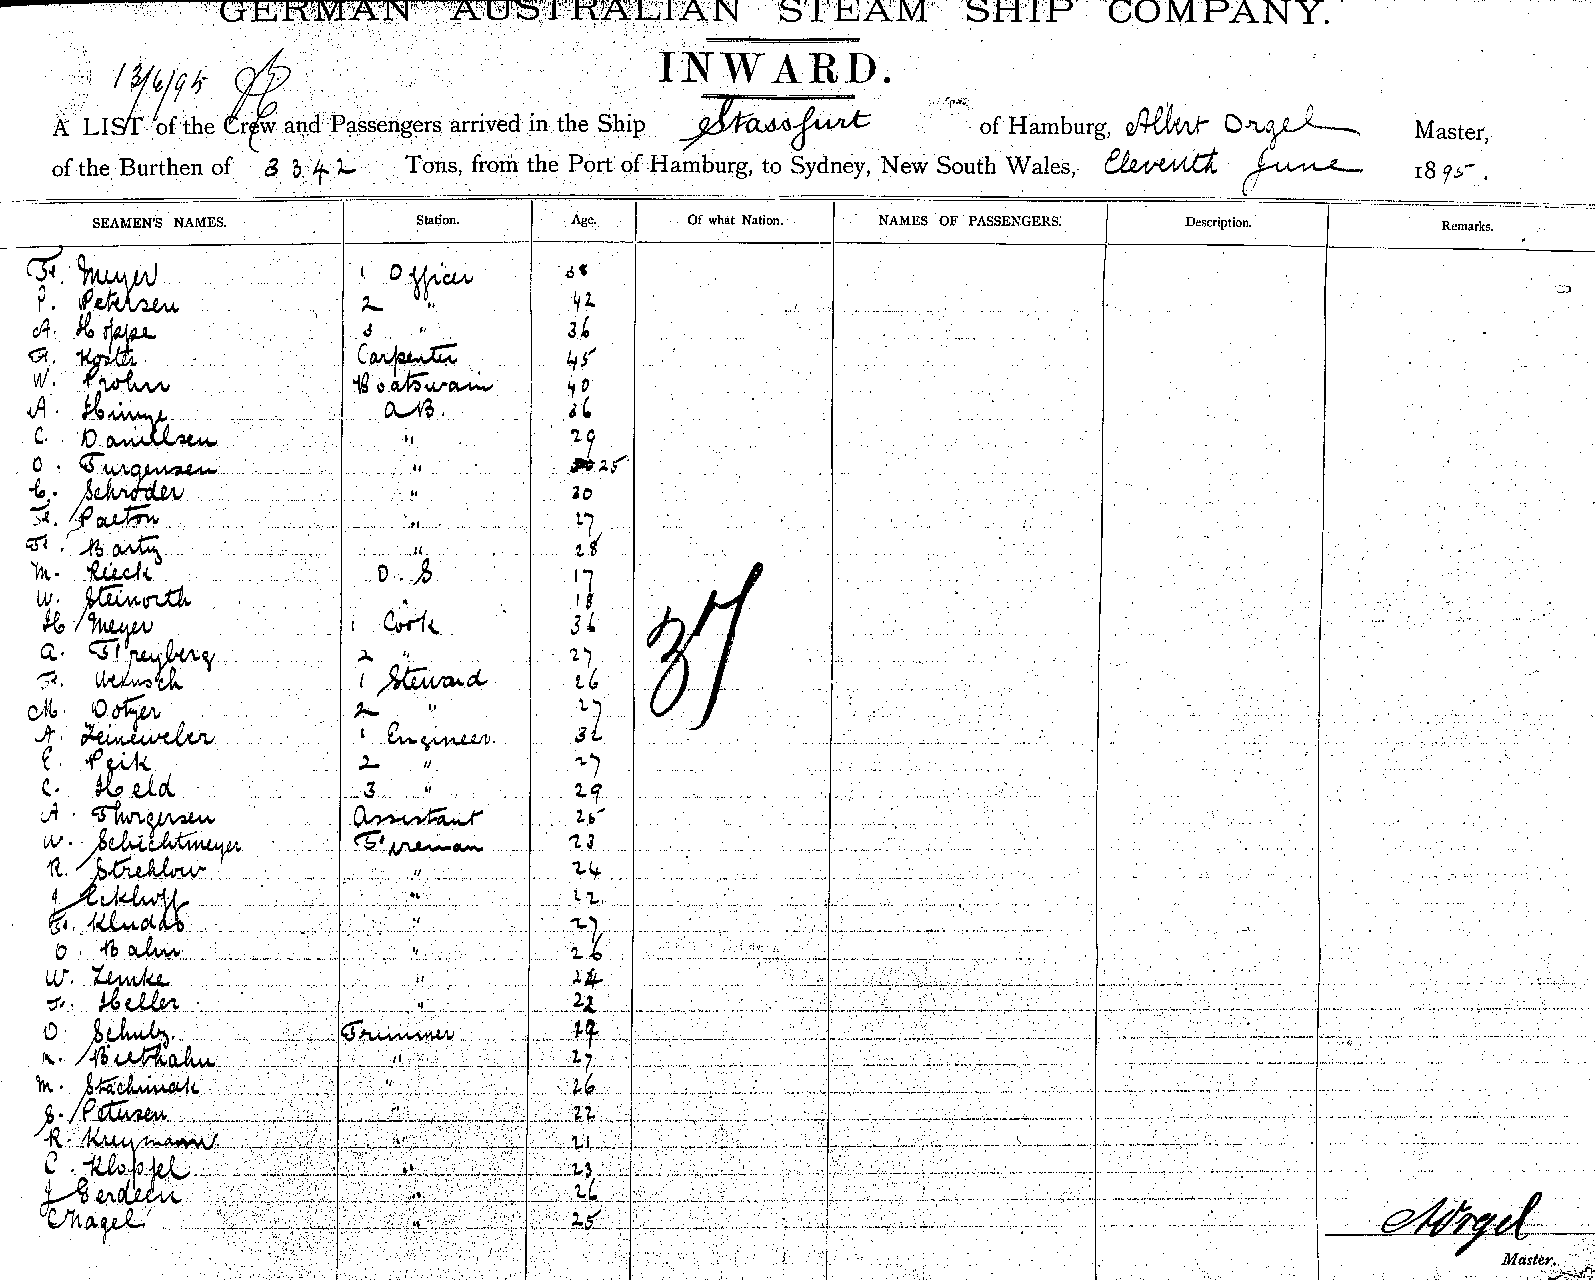 GERMAN AUSTRALIAN STEAM SHIP COMPANY.
INWARD.
13/6/95
A LIST of the Crew and Passengers arrived in the Ship Stassfurt of Hamburg, Albert Orgel Master,
of the Burthen of 3342 Tons, from the Port of Hamburg, to Sydney, New South Wales, Eleventh June 1895.
SEAMEN'S NAMES. Station. Age. Of what Nation. NAMES OF PASSENGERS. Description. Remarks.
Fr. Meyer 1 Officer 38
P. Petersen 2 " 42
A. Hoppe 3 " 36
Fr. Koster Carpenter 45
W. Prohn Boatswain 40
A. Hinnze AB. 36
C. Danielsen " 29
O. Jurgensen " 25
C. Schroder " 30
Fr. Paeton " 27
Fr. Bartz " 28
M. Rieck O. S 17
W. Steinorth " 18
H Meyer 1 Cook 36
A. Freyberg 2 " 27
Fr. Wenusch 1 Steward 26
M. Dotzer 2 " 27
A. Leineweber 1 Engineer. 32
E. Peik 2 " 27
C. Held 3 " 29
A. Thorgersen Assistant 25
W. Schichtmeyer Fireman 23
R. Strehlow " 24
J Eckhoff " 22
Fr. Kluddo " 27
O. Bahn " 26
W. Lemke " 24
Fr. Heller " 22
O Schulz. Trimmer 19
Biethahn " 27
M. Stachinak " 26
S. Petersen " 22
R. Kreymann " 21
C. Kloppel " 23
J Gerdeen " 26
C Nagel " 25
37
A Orgel
Master.